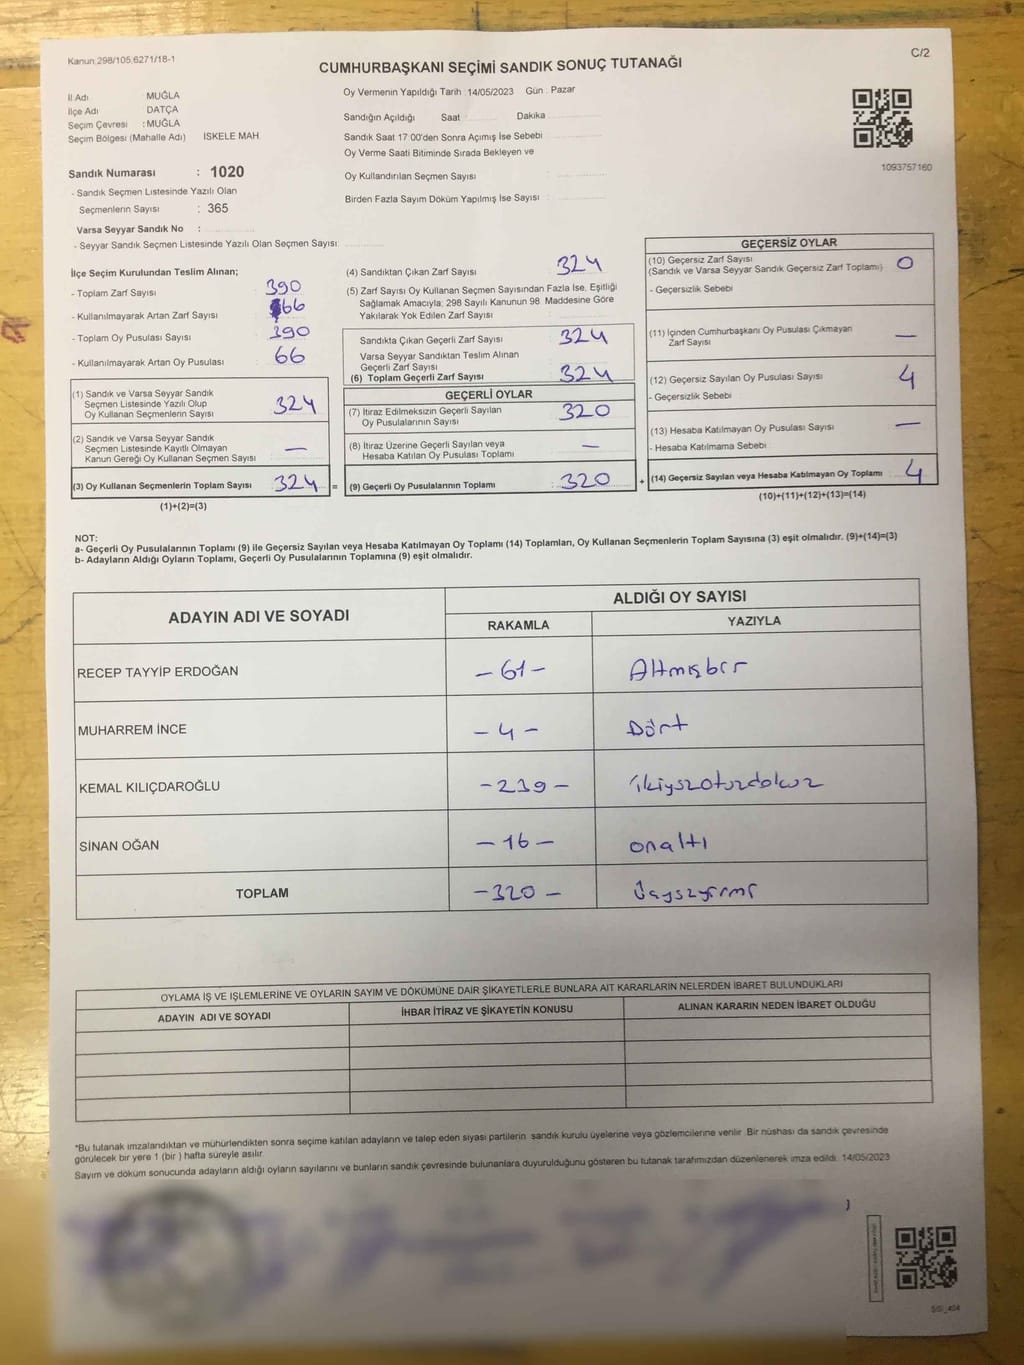 Kanun:298/105.6271/18-1
C/2
CUMHURBAŞKANI SEÇİMİ SANDIK SONUÇ TUTANAĞI
İl Adı : MUĞLA
İlçe Adı : DATÇA
Seçim Çevresi : MUĞLA
Seçim Bölgesi (Mahalle Adı) İSKELE MAH.
Oy Vermenin Yapıldığı Tarih : 14/05/2023 Gün : Pazar
Sandığın Açıldığı Saat Dakika
Sandık Saat 17:00'den Sonra Açımış İse Sebebi
Oy Verme Saati Bitiminde Sırada Bekleyen ve
Oy Kullandırılan Seçmen Sayısı :
Birden Fazla Sayım Döküm Yapılmış İse Sayısı :
1093757160
Sandık Numarası : 1020
- Sandık Seçmen Listesinde Yazılı Olan
Seçmenlerin Sayısı : 365
Varsa Seyyar Sandık No :
- Seyyar Sandık Seçmen Listesinde Yazılı Olan Seçmen Sayısı:
İlçe Seçim Kurulundan Teslim Alınan;
- Toplam Zarf Sayısı 390
- Kullanılmayarak Artan Zarf Sayısı 66
- Toplam Oy Pusulası Sayısı 390
- Kullanılmayarak Artan Oy Pusulası 66
(1) Sandık ve Varsa Seyyar Sandık
Seçmen Listesinde Yazılı Olup
Oy Kullanan Seçmenlerin Sayısı 324
(2) Sandık ve Varsa Seyyar Sandık
Seçmen Listesinde Kayıtlı Olmayan
Kanun Gereği Oy Kullanan Seçmen Sayısı —
(3) Oy Kullanan Seçmenlerin Toplam Sayısı 324 =
(1)+(2)=(3)
(4) Sandıktan Çıkan Zarf Sayısı 324
(5) Zarf Sayısı Oy Kullanan Seçmen Sayısından Fazla İse, Eşitliği
Sağlamak Amacıyla; 298 Sayılı Kanunun 98. Maddesine Göre
Yakılarak Yok Edilen Zarf Sayısı
Sandıkta Çıkan Geçerli Zarf Sayısı 324
Varsa Seyyar Sandıktan Teslim Alınan
Geçerli Zarf Sayısı
(6) Toplam Geçerli Zarf Sayısı 324
GEÇERLİ OYLAR
(7) İtiraz Edilmeksizin Geçerli Sayılan
Oy Pusulalarının Sayısı 320
(8) İtiraz Üzerine Geçerli Sayılan veya
Hesaba Katılan Oy Pusulası Toplamı —
(9) Geçerli Oy Pusulalarının Toplamı : 320 +
GEÇERSİZ OYLAR
(10) Geçersiz Zarf Sayısı
(Sandık ve Varsa Seyyar Sandık Geçersiz Zarf Toplamı) 0
- Geçersizlik Sebebi
(11) İçinden Cumhurbaşkanı Oy Pusulası Çıkmayan
Zarf Sayısı —
(12) Geçersiz Sayılan Oy Pusulası Sayısı 4
- Geçersizlik Sebebi
(13) Hesaba Katılmayan Oy Pusulası Sayısı —
- Hesaba Katılmama Sebebi
(14) Geçersiz Sayılan veya Hesaba Katılmayan Oy Toplamı 4
(10)+(11)+(12)+(13)=(14)
NOT:
a- Geçerli Oy Pusulalarının Toplamı (9) ile Geçersiz Sayılan veya Hesaba Katılmayan Oy Toplamı (14) Toplamları, Oy Kullanan Seçmenlerin Toplam Sayısına (3) eşit olmalıdır. (9)+(14)=(3)
b- Adayların Aldığı Oyların Toplamı, Geçerli Oy Pusulalarının Toplamına (9) eşit olmalıdır.
ADAYIN ADI VE SOYADI
ALDIĞI OY SAYISI
RAKAMLA YAZIYLA
RECEP TAYYİP ERDOĞAN -61- Altmışbir
MUHARREM İNCE -4- Dört
KEMAL KILIÇDAROĞLU -239- ikiyüzotuzdokuz
SİNAN OĞAN -16- onaltı
TOPLAM -320- Üçyüzyirmi
OYLAMA İŞ VE İŞLEMLERİNE VE OYLARIN SAYIM VE DÖKÜMÜNE DAİR ŞİKAYETLERLE BUNLARA AİT KARARLARIN NELERDEN İBARET BULUNDUKLARI
ADAYIN ADI VE SOYADI İHBAR İTİRAZ VE ŞİKAYETİN KONUSU ALINAN KARARIN NEDEN İBARET OLDUĞU
*Bu tutanak imzalandıktan ve mühürlendikten sonra seçime katılan adayların ve talep eden siyasi partilerin sandık kurulu üyelerine veya gözlemcilerine verilir. Bir nüshası da sandık çevresinde
görülecek bir yere 1 (bir ) hafta süreyle asılır.
Sayım ve döküm sonucunda adayların aldığı oyların sayılarını ve bunların sandık çevresinde bulunanlara duyurulduğunu gösteren bu tutanak tarafımızdan düzenlenerek imza edildi. 14/05/2023